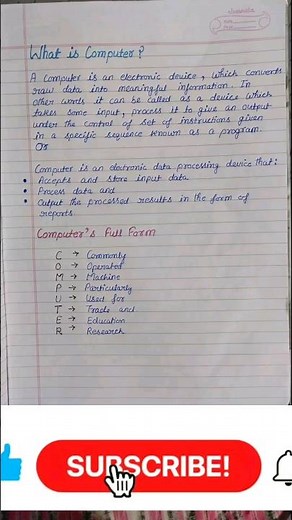 What is Computer?
A Computer is an electronic device, which converts
raw data into meaningful information. In
other words it can be called as a device which
takes some input, process it to give an output
under the control of set of instructions given
in a specific sequence known as a program.
Or
Computer is an electronic data processing device that:
• Accepts and store input data
• Process data and
• Output the processed results in the form of
reports
Computer's Full Form
C → Commonly
O → Operated
M → Machine
P → Particularly
U → Used for
T → Trade and
E → Education
R → Research
SUBSCRIBE!